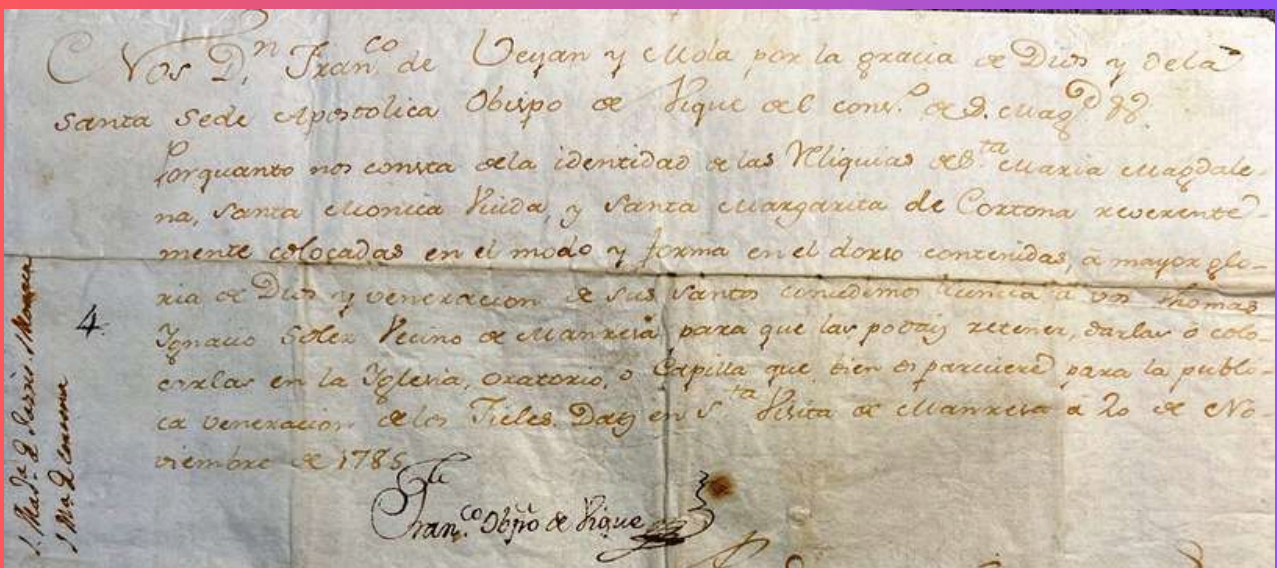 Nos D.n Fran.co de Veyan y Mola por la gracia de Dios y dela
Santa Sede Apostolica Obispo de Vique del cons.o de S. Mag.d &&.
Porquanto nos consta dela identidad de las Reliquias de S.ta Maria Magdale-
na, Santa Monica Viuda, y Santa Margarita de Cortona reverente-
mente colocadas en el modo y forma en el dorso contenidas, à mayor glo-
ria de Dios y veneracion de sus Santos concedimo licencia à vos Thomas
Ignacio Soler Vecino de Manresa para que las podais retener, darlas ò colo-
carlas en la Iglesia, oratorio, o Capilla que bien os pareciere para la publi-
ca veneracion delos Fieles. Dag en S.ta Visita de Manresa à 20 de No-
viembre de 1785
Fran.co Obpo de Vique
4.